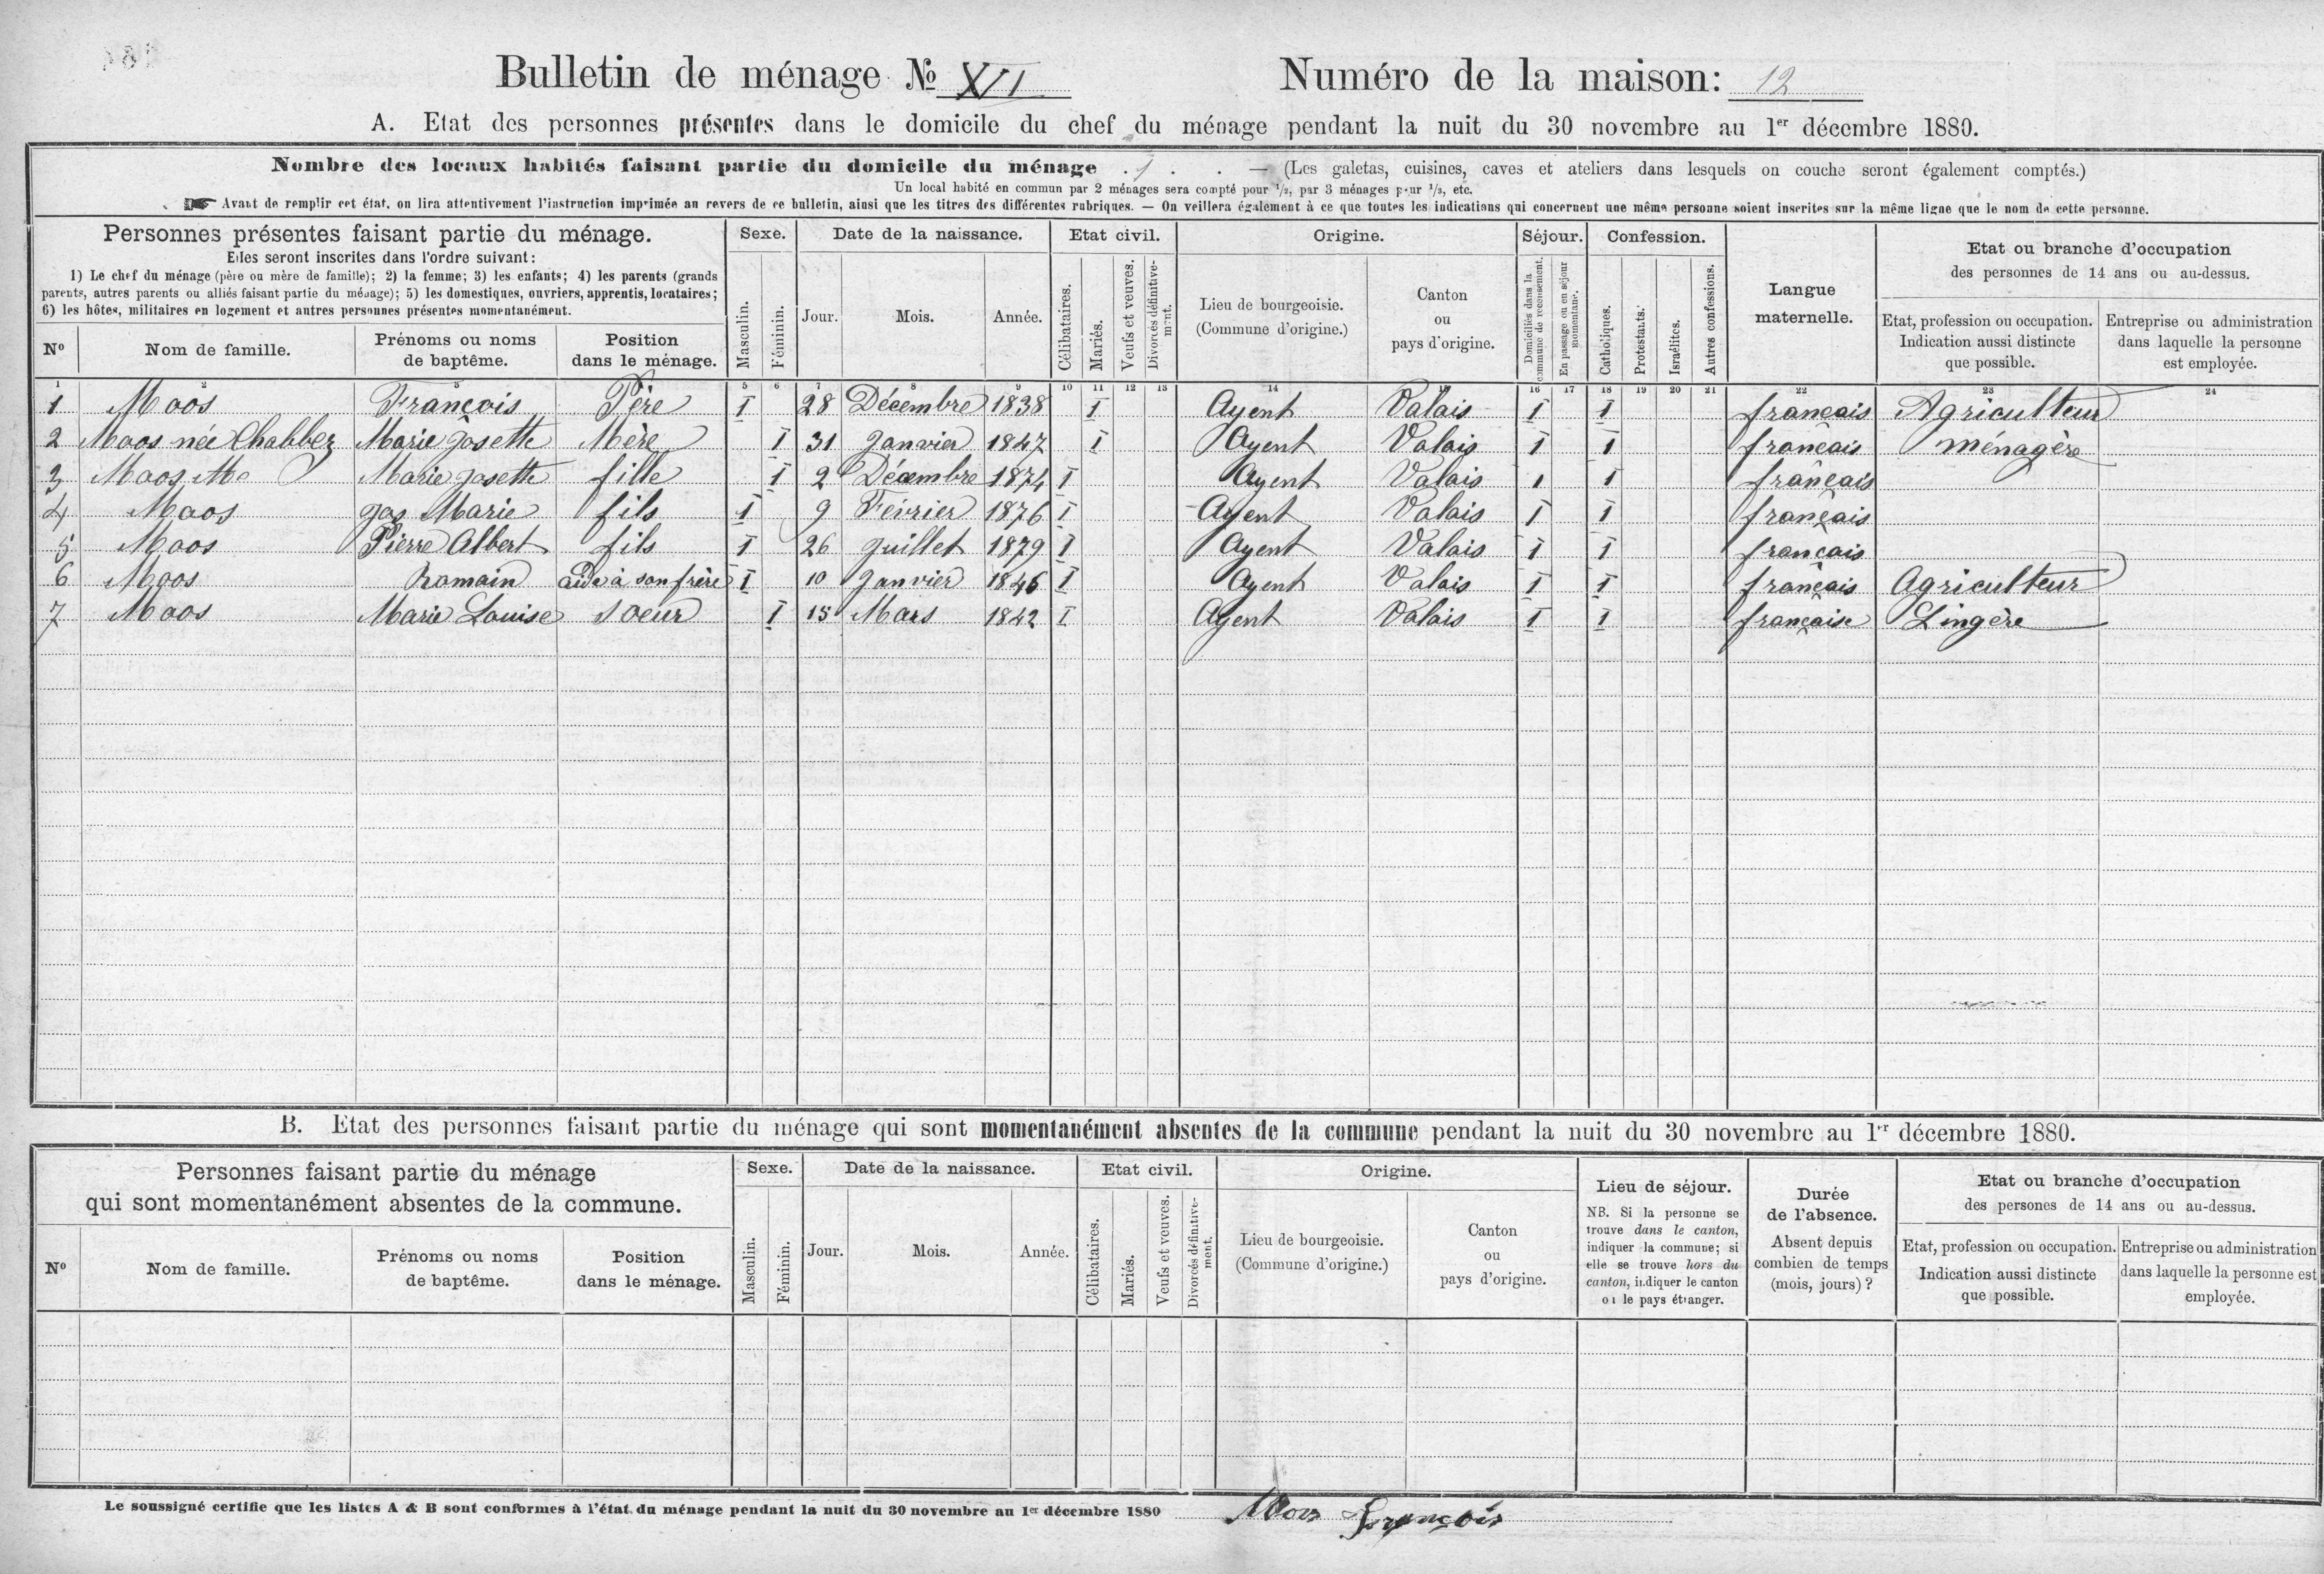 Bulletin de ménage № XII Numéro de la maison: 12
A. Etat des personnes présentes dans le domicile du chef du ménage pendant la nuit du 30 novembre au 1er décembre 1880.
Nombre des locaux habités faisant partie du domicile du ménage . 1 . . — (Les galetas, cuisines, caves et ateliers dans lesquels on couche seront également comptés.)
Un local habité en commun par 2 ménages sera compté pour 1/2, par 3 ménages pour 1/3, etc.
☛ Avant de remplir cet état, on lira attentivement l'instruction imprimée au revers de ce bulletin, ainsi que les titres des différentes rubriques. — On veillera également à ce que toutes les indications qui concernent une même personne soient inscrites sur la même ligne que le nom de cette personne.
Personnes présentes faisant partie du ménage.
Elles seront inscrites dans l'ordre suivant:
1) Le chef du ménage (père ou mère de famille); 2) la femme; 3) les enfants; 4) les parents (grands
parents, autres parents ou alliés faisant partie du ménage); 5) les domestiques, ouvriers, apprentis, locataires;
6) les hôtes, militaires en logement et autres personnes présentes momentanément.
Nº Nom de famille. Prénoms ou noms de baptême. Position dans le ménage.
Sexe. Masculin. Féminin.
Date de la naissance. Jour. Mois. Année.
Etat civil. Célibataires. Mariés. Veufs et veuves. Divorcés définitivement.
Origine. Lieu de bourgeoisie. (Commune d'origine.) Canton ou pays d'origine.
Séjour. Domiciliés dans la commune de recensement. En passage ou en séjour momentané.
Confession. Catholiques. Protestants. Israélites. Autres confessions.
Langue maternelle.
Etat ou branche d'occupation des personnes de 14 ans ou au-dessus.
Etat, profession ou occupation. Indication aussi distincte que possible.
Entreprise ou administration dans laquelle la personne est employée.
1 2 3 5 6 7 8 9 10 11 12 13 14 15 16 17 18 19 20 21 22 23 24
1 Moos François Père I 28 Décembre 1838 I Ayent Valais I I français Agriculteur
2 Moos née Chabbez Marie Josette Mère I 31 Janvier 1847 I Ayent Valais I I français ménagère
3 Moos Marie Josette fille I 2 Décembre 1874 I Ayent Valais I I français
4 Moos Jos Marie fils I 9 Février 1876 I Ayent Valais I I français
5 Moos Pierre Albert fils I 26 Juillet 1879 I Ayent Valais I I français
6 Moos Romain aide à son frère I 10 Janvier 1846 I Ayent Valais I I français Agriculteur
7 Moos Marie Louise soeur I 15 Mars 1842 I Ayent Valais I I française Lingère
B. Etat des personnes faisant partie du ménage qui sont momentanément absentes de la commune pendant la nuit du 30 novembre au 1er décembre 1880.
Personnes faisant partie du ménage
qui sont momentanément absentes de la commune.
Nº Nom de famille. Prénoms ou noms de baptême. Position dans le ménage.
Sexe. Masculin. Féminin.
Date de la naissance. Jour. Mois. Année.
Etat civil. Célibataires. Mariés. Veufs et veuves. Divorcés définitivement.
Origine. Lieu de bourgeoisie. (Commune d'origine.) Canton ou pays d'origine.
Lieu de séjour.
NB. Si la personne se trouve dans le canton, indiquer la commune; si elle se trouve hors du canton, indiquer le canton ou le pays étranger.
Durée de l'absence. Absent depuis combien de temps (mois, jours)?
Etat ou branche d'occupation des persones de 14 ans ou au-dessus.
Etat, profession ou occupation. Indication aussi distincte que possible.
Entreprise ou administration dans laquelle la personne est employée.
Le soussigné certifie que les listes A & B sont conformes à l'état du ménage pendant la nuit du 30 novembre au 1er décembre 1880 Moos François